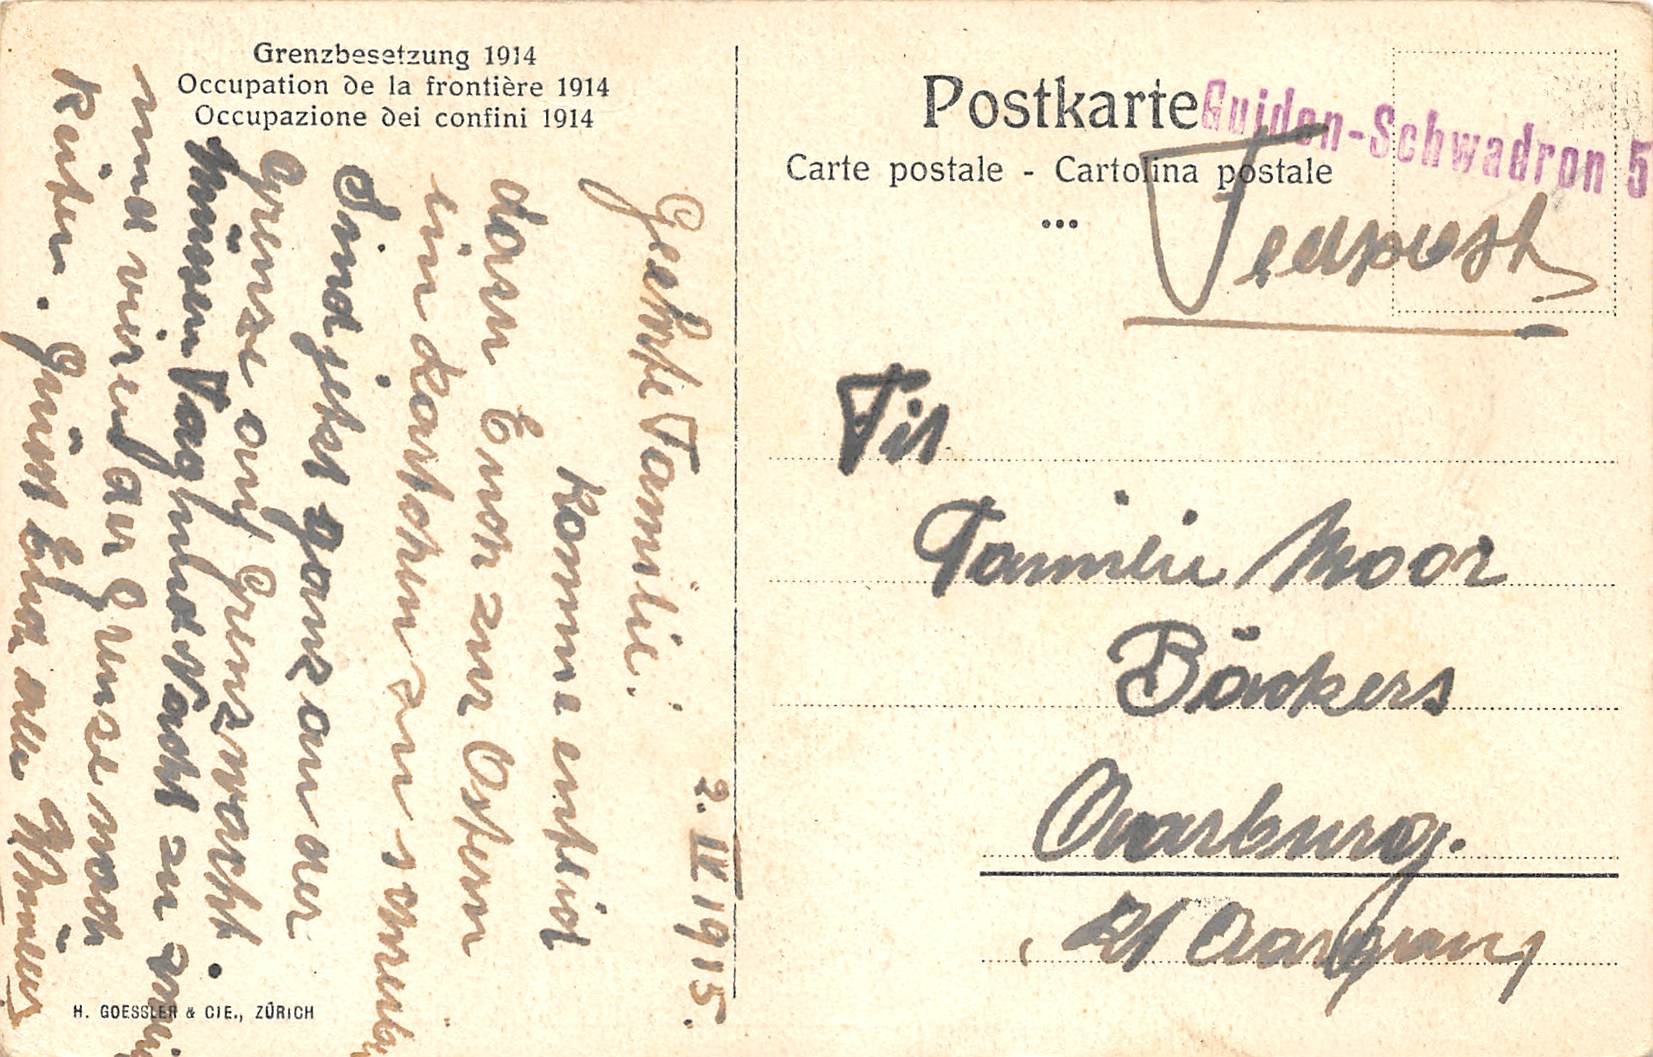 Grenzbesetzung 1914
Occupation de la frontière 1914
Occupazione dei confini 1914
Postkarte
Carte postale - Cartolina postale
Guiden-Schwadron 5
Feldpost
Tit
Familie Moor
Bäckers
Aarburg.
Kt Aargau
2. IV 1915.
Geehrte Familie.
Komme endlich
dazu Euch zur Ostern
ein Kärtchen zu schreiben
Sind jetzt ganz an der
Grenze auf Grenzwacht.
müssen Tag und Nacht zu
und der Grenze nach
Reiten. Grüsst Euch alle
H. GOESSLER & CIE., ZÜRICH